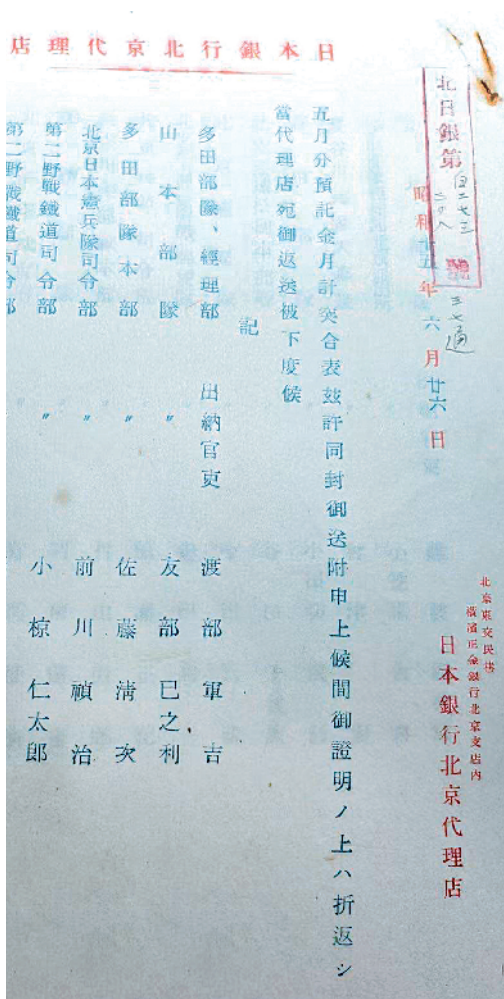 店理代京北行銀本日
北日銀第
自二七三
三七通
昭和十五年六月廿六日
北京東交民巷
橫濱正金銀行北京支店內
日本銀行北京代理店
五月分預託金月計突合表玆許同封御送附申上候間御證明ノ上ハ折返シ
當代理店宛御返送被下度候
記
多田部隊、經理部 出納官吏 渡部軍吉
山本部隊 〃 友部巳之利
多田部隊本部 〃 佐藤淸次
北京日本憲兵隊司令部 〃 前川禎治
第二野戰鐵道司令部 〃 小椋仁太郎
第二野戰鐵道司令部